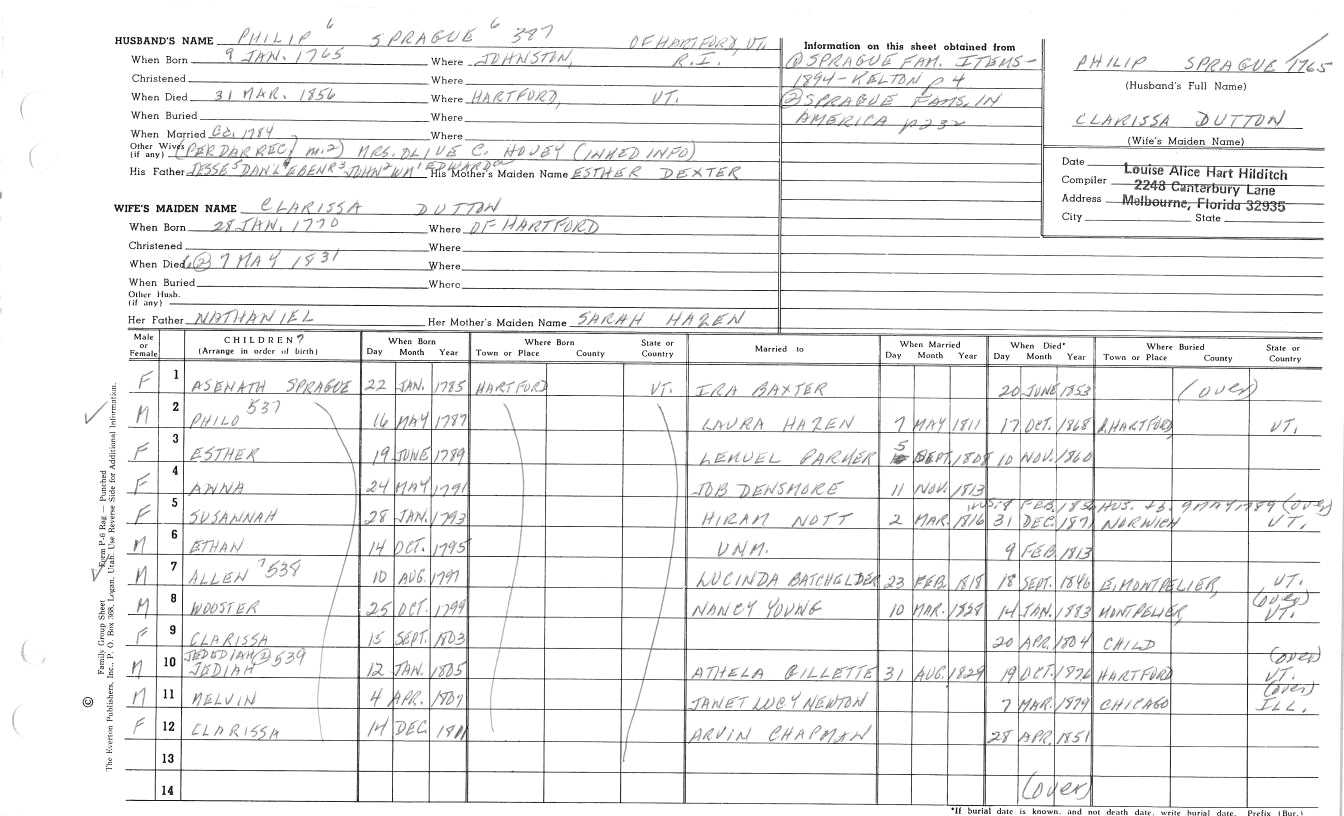 HUSBAND'S NAME PHILIP 6 SPRAGUE 6 387 OF HARTFORD, VT.
When Born 9 JAN. 1765 Where JOHNSTON, R.I.
Christened Where
When Died 31 MAR. 1856 Where HARTFORD, VT.
When Buried Where
When Married Ca. 1784 Where
Other Wives (if any) (PER DAR REC) m.2) MRS. OLIVE C. HOVEY (INKED INFO)
His Father JESSE5 DAN'L4 EBENR3 JOHN2 WM1 EDWARD His Mother's Maiden Name ESTHER DEXTER
WIFE'S MAIDEN NAME CLARISSA DUTTON
When Born 28 JAN. 1770 Where OF HARTFORD
Christened Where
When Died (2) 7 MAY 1831 Where
When Buried Where
Other Husb. (if any)
Her Father NATHANIEL Her Mother's Maiden Name SARAH HAZEN
Information on this sheet obtained from
(1) SPRAGUE FAM. ITEMS -
1894 - KELTON p 4
(2) SPRAGUE FAMS. IN
AMERICA p 232
PHILIP SPRAGUE 1765
(Husband's Full Name)
CLARISSA DUTTON
(Wife's Maiden Name)
Date
Compiler Louise Alice Hart Hilditch
Address 2248 Canterbury Lane
Melbourne, Florida 32935
City State
Male or Female CHILDREN 7 (Arrange in order of birth) When Born Day Month Year Where Born Town or Place County State or Country Married to When Married Day Month Year When Died* Day Month Year Where Buried Town or Place County State or Country
F 1 ASENATH SPRAGUE 22 JAN. 1785 HARTFORD VT. IRA BAXTER 20 JUNE 1853 (over)
M 2 PHILO 537 16 MAY 1787 LAURA HAZEN 7 MAY 1811 17 OCT. 1868 HARTFORD, VT.
F 3 ESTHER 19 JUNE 1789 LEMUEL PARKER 5 SEPT. 1808 10 NOV. 1860
F 4 ANNA 24 MAY 1791 JOB DENSMORE 11 NOV. 1813
FEB. 1856 HUS. +b. 9 MAY 1789 (over)
F 5 SUSANNAH 28 JAN. 1793 HIRAM NOTT 2 MAR. 1816 31 DEC. 1871 NORWICH VT.
M 6 ETHAN 14 OCT. 1795 UNM. 9 FEB. 1813
M 7 ALLEN 7 538 10 AUG. 1797 LUCINDA BATCHELDER 23 FEB. 1818 18 SEPT. 1846 E. MONTPELIER, VT.
(over)
M 8 WOOSTER 25 OCT. 1799 NANCY YOUNG 10 MAR. 1828 14 JAN. 1883 MONTPELIER, VT.
F 9 CLARISSA 15 SEPT. 1803 20 APR. 1804 CHILD
JEDEDIAH (2) 539 (over)
M 10 JEDIAH 12 JAN. 1805 ATHELA GILLETTE 31 AUG. 1829 19 OCT. 1876 HARTFORD VT.
(over)
M 11 MELVIN 4 APR. 1807 JANET LUCY NEWTON 7 MAR. 1879 CHICAGO ILL.
F 12 CLARISSA 14 DEC. 1811 ARVIN CHAPMAN 28 APR. 1851
13
14 (over)
*If burial date is known, and not death date, write burial date. Prefix (Bur.)
Family Group Sheet Form P-6 Rag — Punched
© The Everton Publishers, Inc., P. O. Box 368, Logan, Utah. Use Reverse Side for Additional Information.